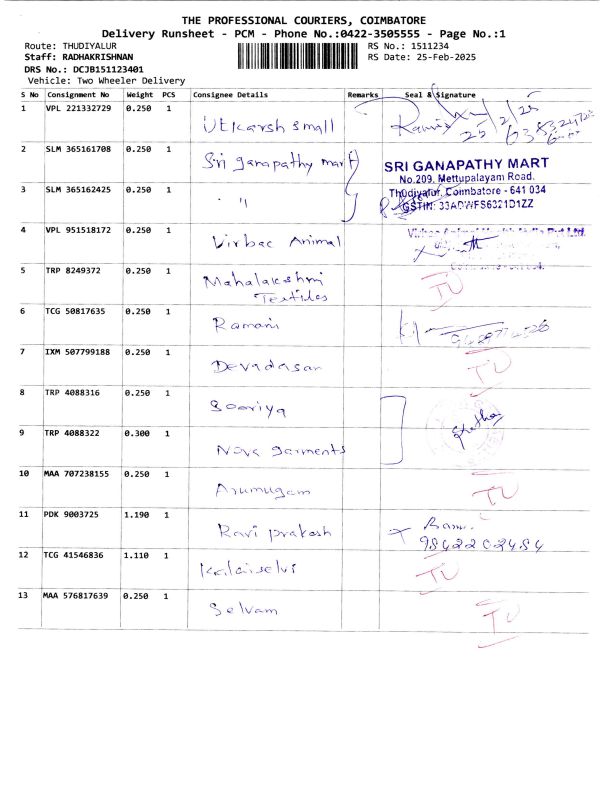 THE PROFESSIONAL COURIERS, COIMBATORE
Delivery Runsheet - PCM - Phone No.:0422-3505555 - Page No.:1
Route: THUDIYALUR
RS No.: 1511234
Staff: RADHAKRISHNAN
RS Date: 25-Feb-2025
DRS No.: DCJB151123401
Vehicle: Two Wheeler Delivery
S No Consignment No Weight PCS Consignee Details Remarks Seal & Signature
1 VPL 221332729 0.250 1 Utkarsh small
25/2/25
2 SLM 365161708 0.250 1 Sri ganapathy mart
SRI GANAPATHY MART
No.209, Mettupalayam Road.
3 SLM 365162425 0.250 1 "
Thudiyalur, Coimbatore - 641 034
GSTIN: 33ADWFS6321D1ZZ
4 VPL 951518172 0.250 1 Virbac Animal
5 TRP 8249372 0.250 1 Mahalakshmi
Textiles
TU
6 TCG 50817635 0.250 1 Ramani
7 IXM 507799188 0.250 1 Devadasan TU
8 TRP 4088316 0.250 1 Sooriya
9 TRP 4088322 0.300 1 Nova garments
10 MAA 707238155 0.250 1 Arumugam TU
11 PDK 9003725 1.190 1 Ravi prakash
12 TCG 41546836 1.110 1 Kalaiselvi TU
13 MAA 576817639 0.250 1 Selvam TU